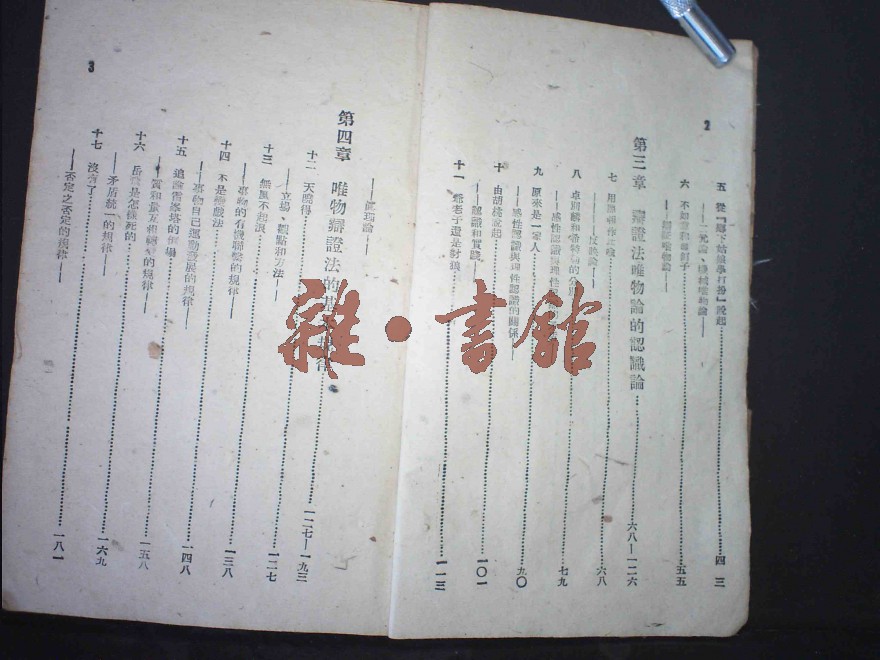 2
五 從「鄉下姑娘學打扮」說起……四三
——二元論、機械唯物論——
六 不如意……釘子……五五
——辯証唯物論——
第三章 辯證法唯物論的認識論……六八—一二六
七 用照相作比喻……六八
——反映論——
八 卓別麟和希特勒的分別……七九
——感性認識與理性認識
九 原來是一家人……九〇
——感性認識與理性認識的關係——
十 由胡桃說起……一〇一
——認識和實踐——
十一 爺老子還是對頭……一一三
3
——真理論——
第四章 唯物辯證法的基本規律……一二七—一九三
十二 天曉得
——立場、觀點和方法——
十三 無風不起浪……一二七
——事物的有機聯繫的規律——
十四 不是變戲法……一三八
——事物自己運動發展的規律——
十五 追論雷峯塔的倒塌……一四八
——質和量互相轉變的規律——
十六 岳飛是怎樣死的……一五八
——矛盾統一的規律——
十七 沒有了……一六九
——否定之否定的規律——……一八一
雜·書館